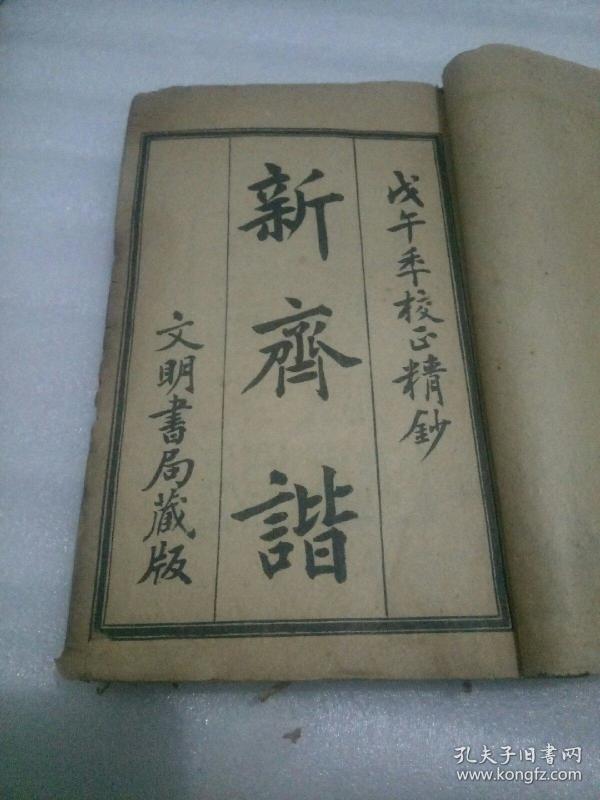 戊午年校正精鈔
新齊諧
文明書局藏版
孔夫子旧書网
www.kongfz.com